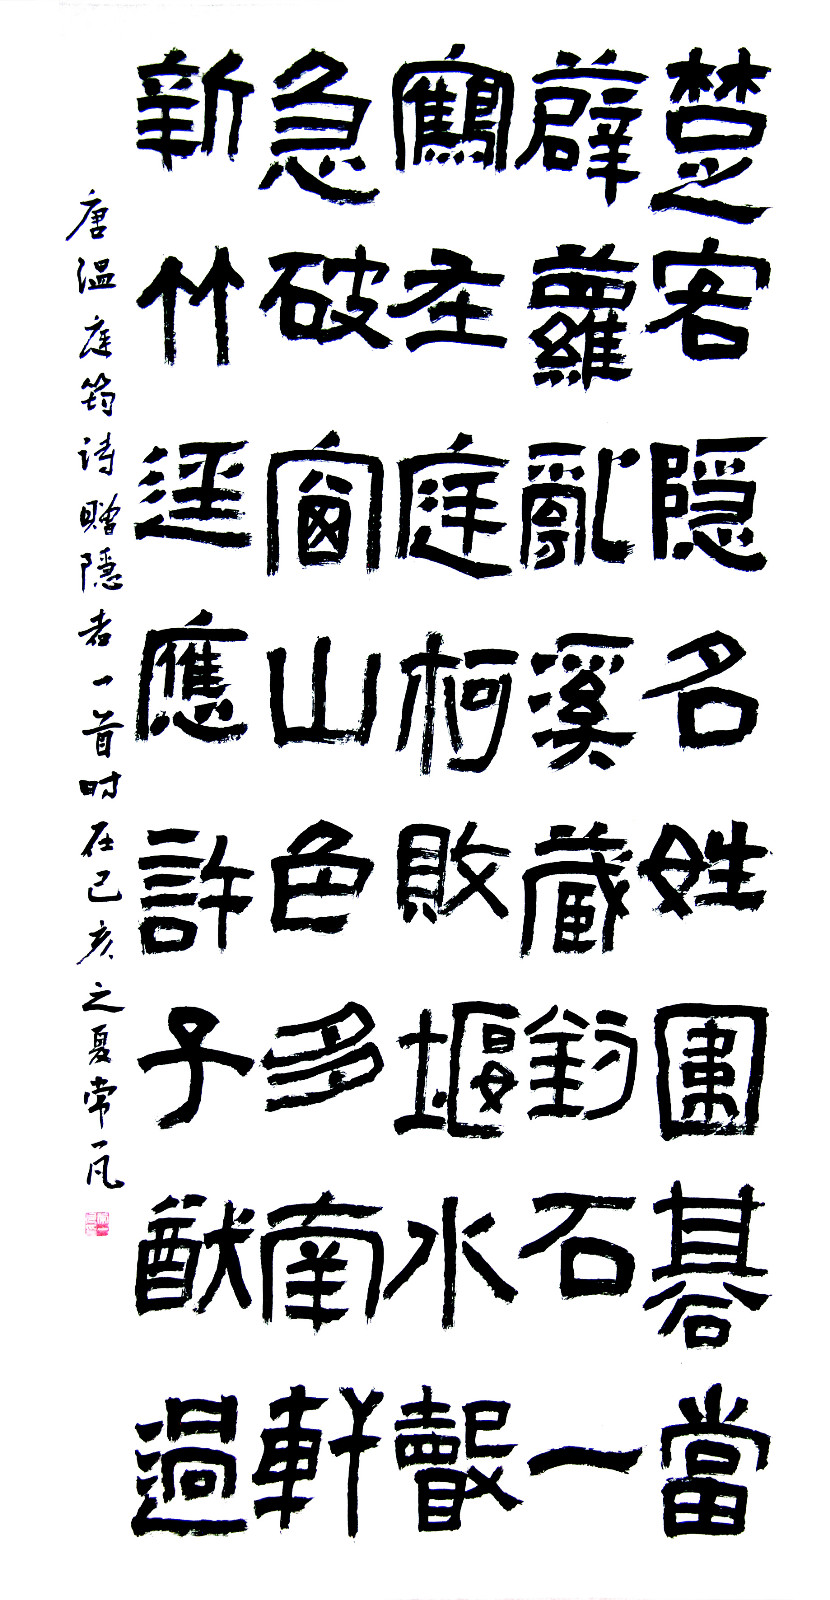 楚客隐名姓圍碁當
薜蘿亂溪藏釣石一
鶴在庭柯敗堰水聲
急破窗山色多南軒
新竹逕應許子猷過
唐温庭筠诗赠隐者一首时在己亥之夏常一凡